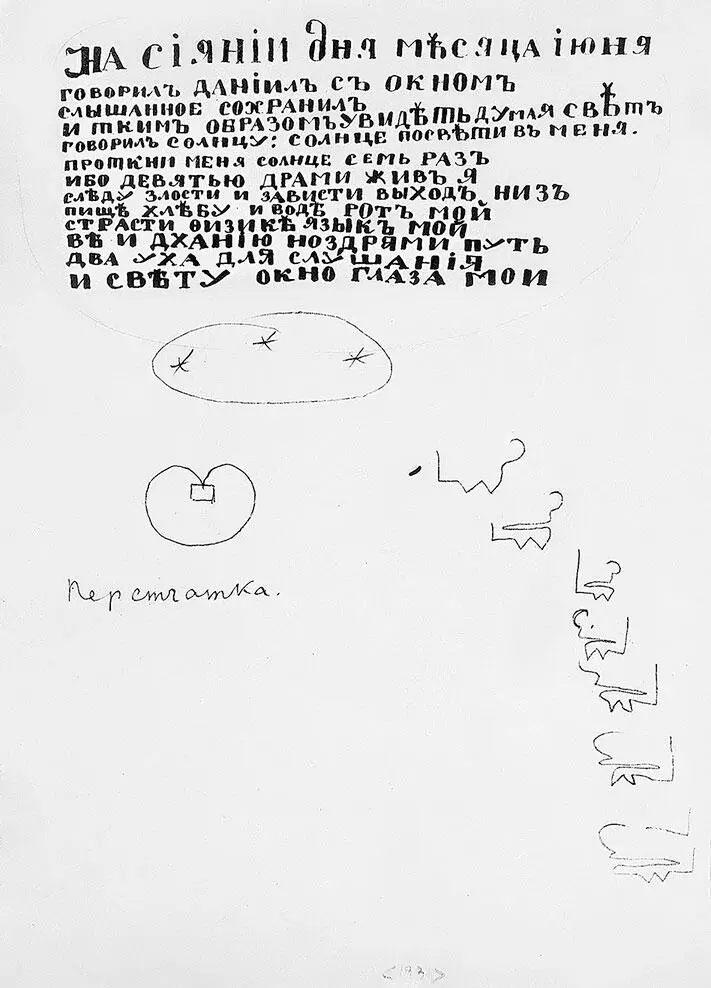 НА СІЯНІИ ДНЯ МѢСЯЦА ІЮНЯ
ГОВОРИЛЪ ДАНІИЛЪ СЪ ОКНОМЪ
СЛЫШАННОЕ СОХРАНИЛЪ
И ТКИМЪ ОБРАЗОМЪ УВИДѢТЬ ДУМАЯ СВѢТЪ
ГОВОРИЛЪ СОЛНЦУ: СОЛНЦЕ ПОСВѢТИ ВЪ МЕНЯ.
ПРОТКНИ МЕНЯ СОЛНЦЕ СЕМЬ РАЗЪ
ИБО ДЕВЯТЬЮ ДРАМИ ЖИВЪ Я
СЛѢДУ ЗЛОСТИ И ЗАВИСТИ ВЫХОДЪ НИЗЪ
ПИЩѢ ХЛѢБУ И ВОДѢ РОТЪ МОЙ
СТРАСТИ ФИЗИКѢ ЯЗЫКЪ МОЙ
ВѢ И ДХАНІЮ НОЗДРЯМИ ПУТЬ
ДВА УХА ДЛЯ СЛУШАНІЯ
И СВѢТУ ОКНО ГЛАЗА МОИ
Перстчатка.
<193 >